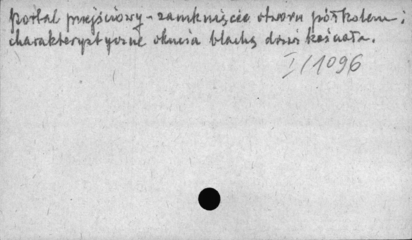 portal przejściowy - zamknięcie otworu półkolem ;
charakterystyczne okucia blachą drzwi kościoła.
I/1096